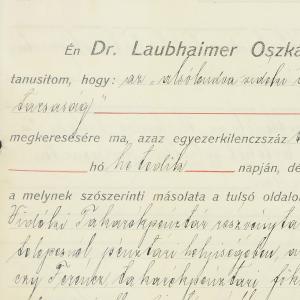 Én Dr. Laubhaimer Oszka
tanusitom, hogy: az „alsólendva vidéki
társaság"
megkeresésére ma, azaz egyezerkilenczszáz
hó hetedik napján, dé
a melynek szószerinti másolata a tulsó oldalo
Vidéki Takarékpénztár részvénytá
telepesnel pénztári helyiségében, a
czy Ferencz takarékpénztári